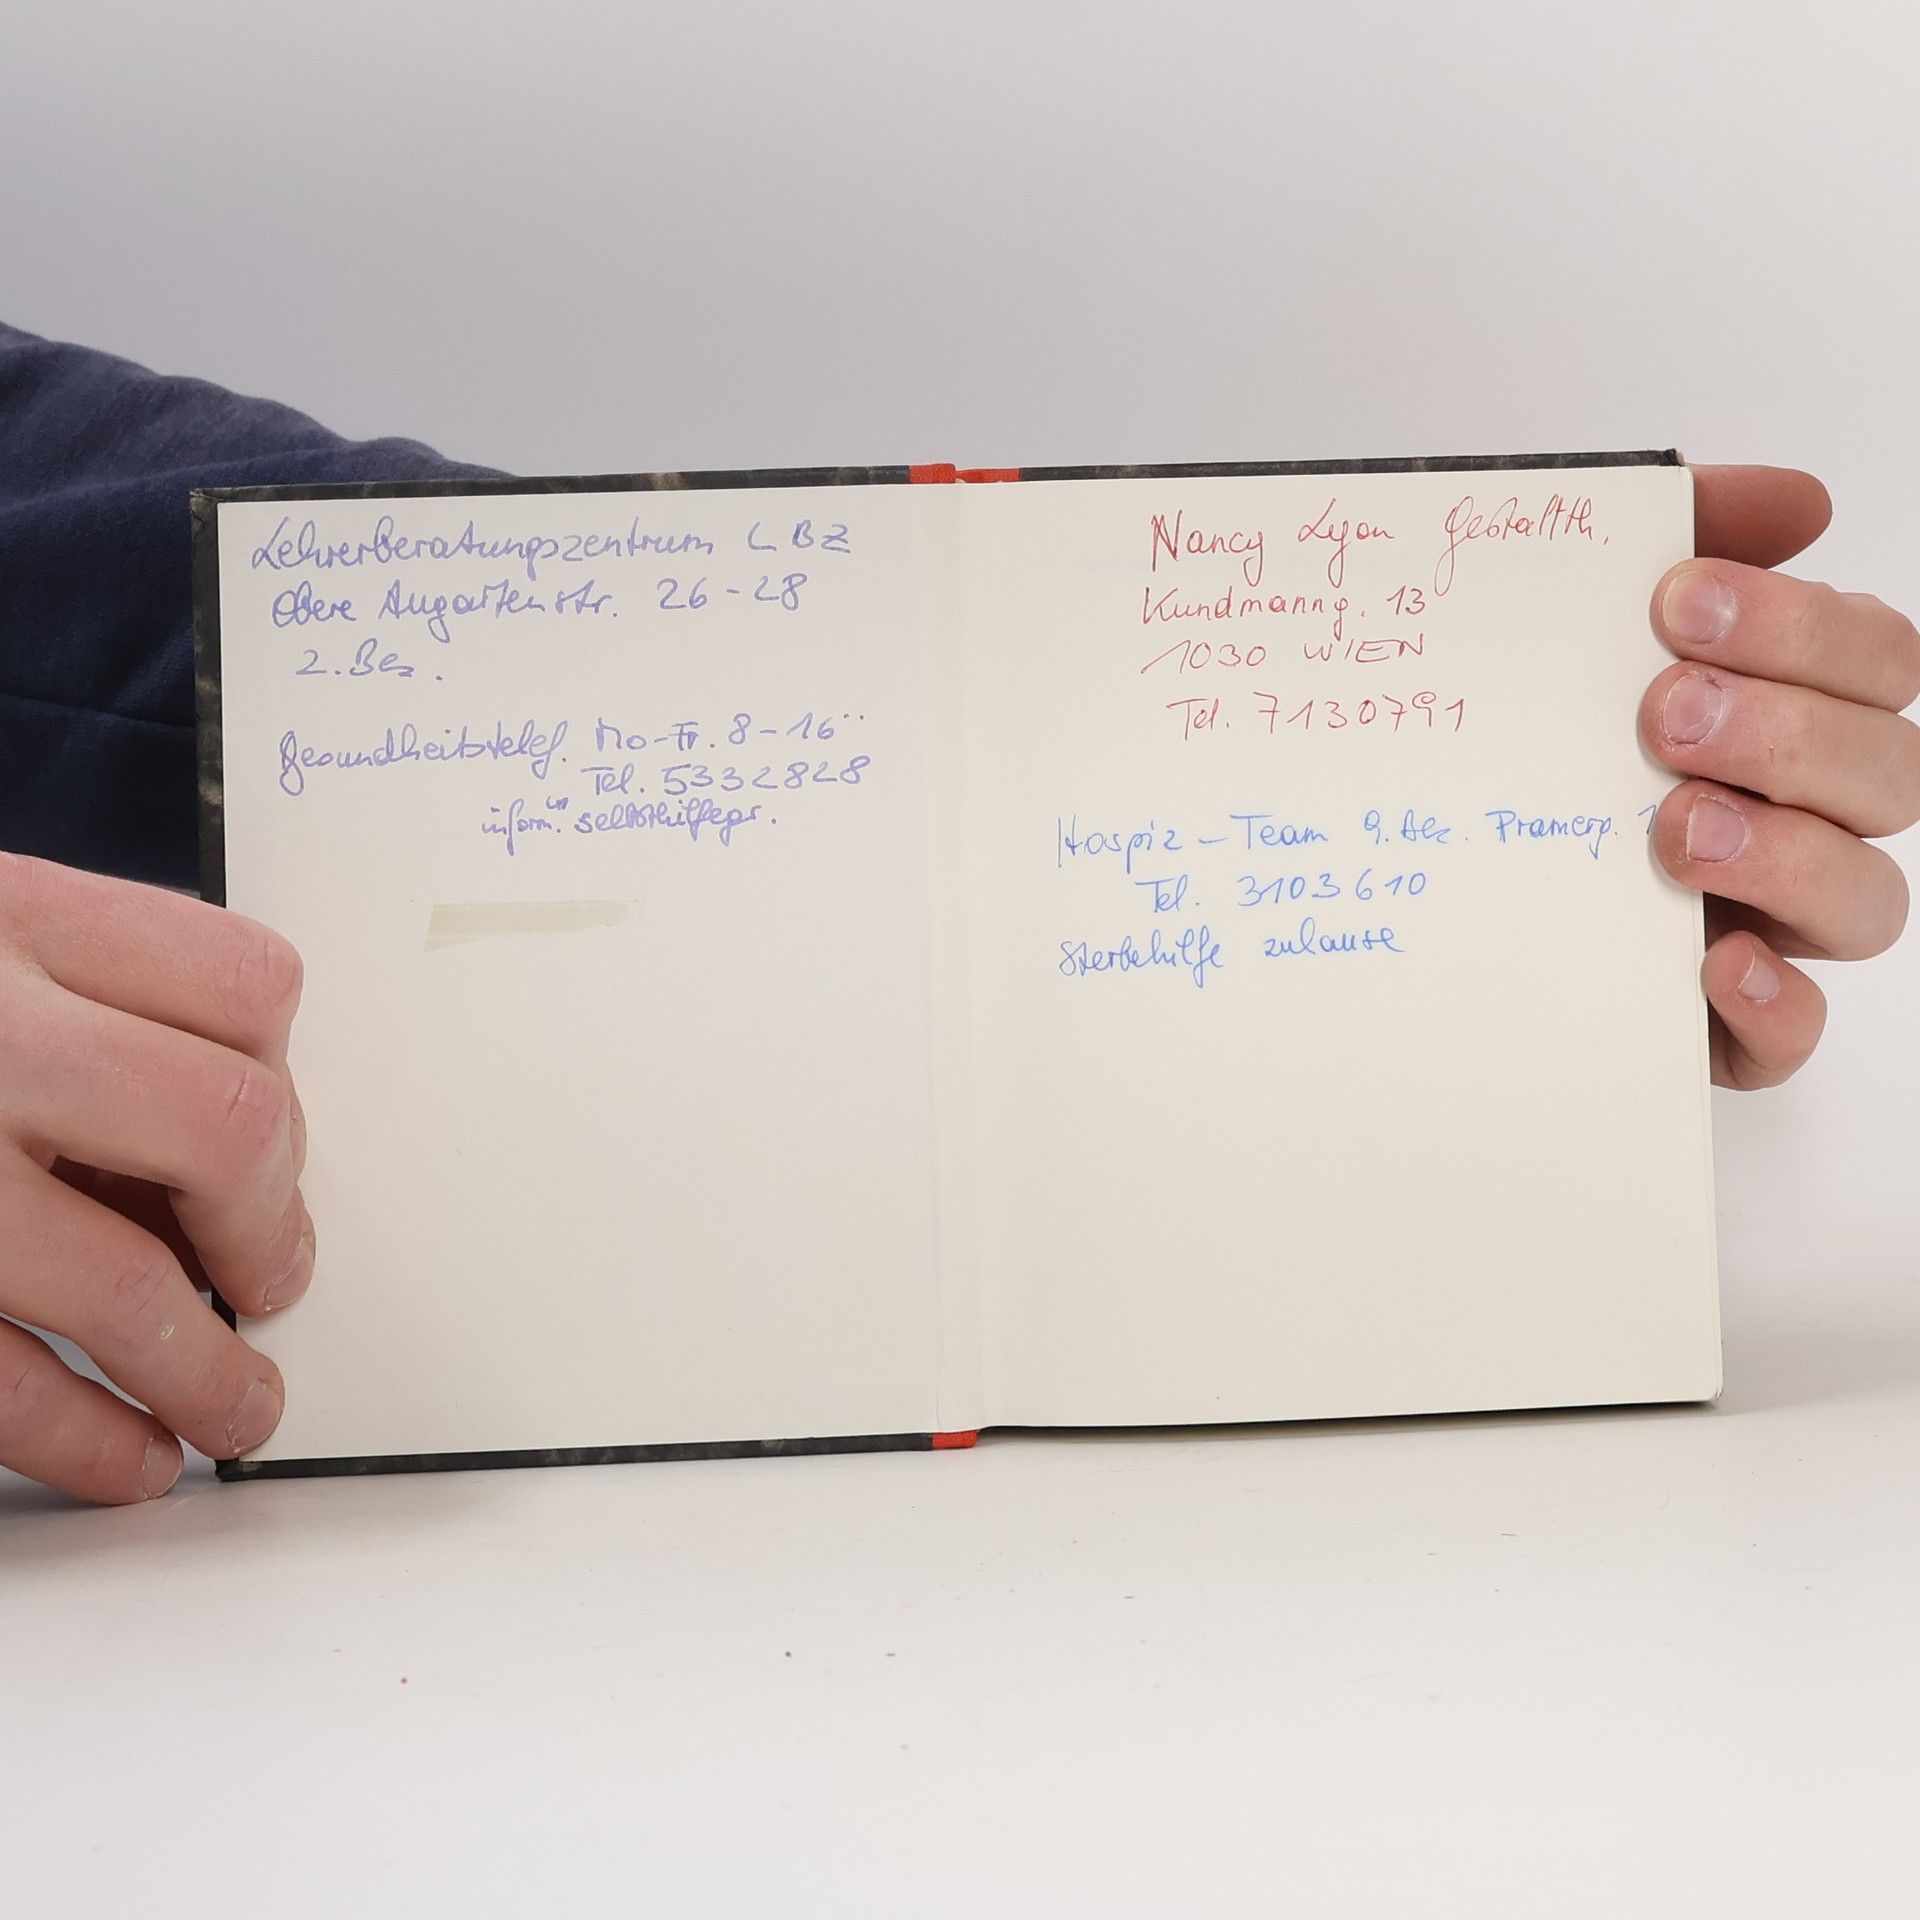 Lehrerberatungszentrum LBZ
Obere Augartenstr. 26-28
2. Bez.
Gesundheitstelef. Mo-Fr. 8-16
Tel. 5332828
inform. Selbsthilfegr.
Nancy Lyon Gestaltth.
Kundmanng. 13
1030 WIEN
Tel. 7130791
Hospiz-Team 9. Bez. Pramerg. 1
Tel. 3103610
Sterbehilfe zuhause